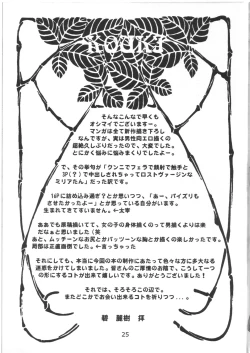 KOUKI
そんなこんなで早くも
オシマイでございますー。
マンガは全て新作描き下ろし
なんですが、実は男性向エロ描くの
超絶久しぶりだったので、大変でした。
とにかく悩みに悩みまくりでしたよー。
で、その挙句が「クンニでフェラで顔射で触手と
3P(?)で中出しされちゃってロストヴァージンな
ミリアたん」だった訳です。
16Pに詰め込み過ぎ?とか思いつつ、「あー、パイズリも
させたかったよー」とか思っている自分がいます。
生まれてきてすいません。←太宰
ああでも原稿描いてて、女の子の身体描くのって男描くよりは楽
だなぁと思いました(笑
あと、ムッチーンなお尻とかパッツーンな胸とか描くの楽しかったです。
局部は正直面倒でした。←言っちゃった
それにしても、本当に今回の本の制作にあたって色々な方に多大なる
迷惑をかけてしまいました。皆さんのご厚情のお陰で、こうして一つ
の形にするコトが出来て嬉しいです。ありがとうございました!
それでは、そろそろこの辺で。
またどこかでお会い出来るコトを祈りつつ・・・。
碧 麗樹 拝
25